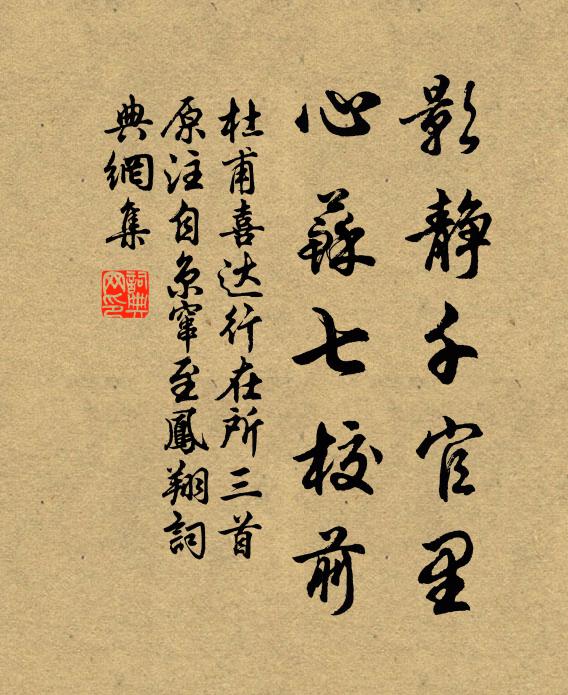 影静千官里
心蘇七校前
杜甫喜达行在所三首
原注自京窜至鳳翔詞
典網集
詞典网印